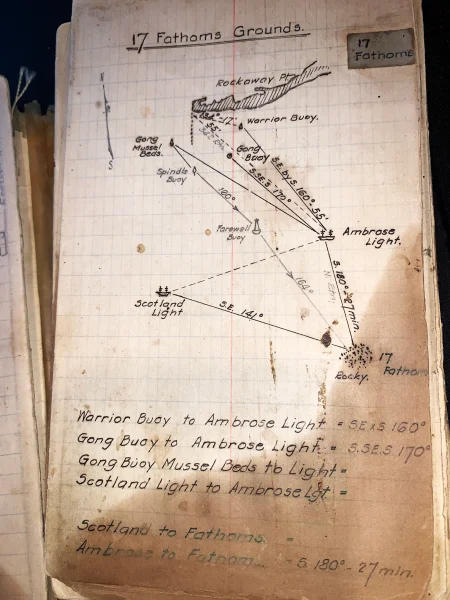 17 Fathoms Grounds.
17
Fathoms
Rockaway Pt.
Warrior Buoy.
Gong
Mussel
Beds.
Gong
Buoy
Spindle
Buoy
S.E. by S. 160°-55'
S.S.E.S. 170°
160°
Farewell
Buoy
Ambrose
Light.
S. 180°-27 min.
164°
Scotland
Light
S.E. 141°
17
Fathom
Rocky.
Warrior Buoy to Ambrose Light = S.E.x S 160°
Gong Buoy to Ambrose Light = S.S.E.S. 170°
Gong Buoy Mussel Beds to Light =
Scotland Light to Ambrose Lgt =
Scotland to Fathoms. =
Ambrose to Fathom = S. 180° - 27 min.